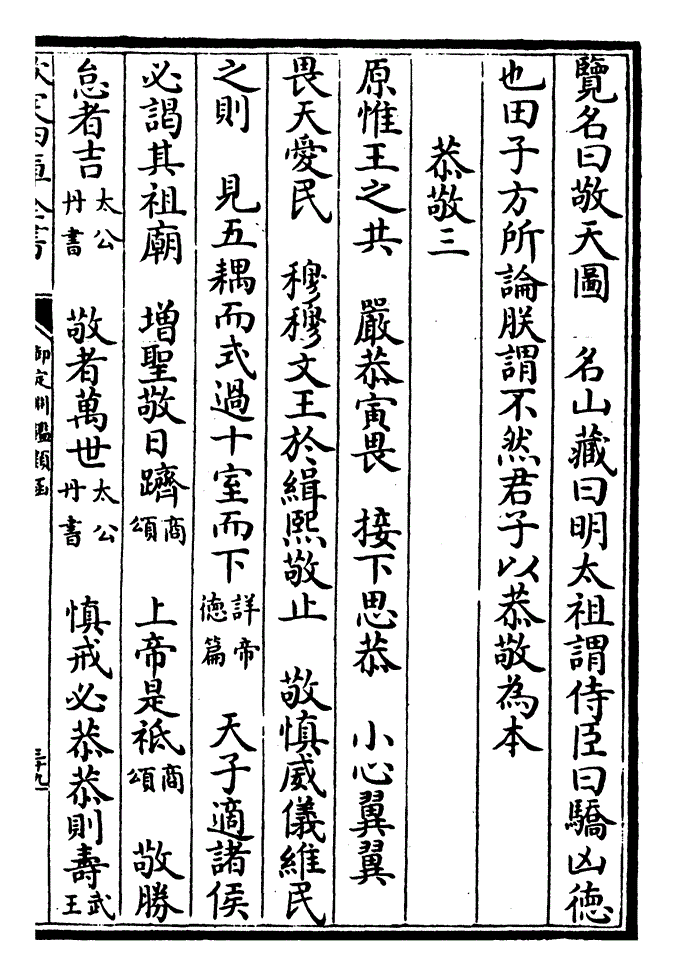 覽名曰敬天圖　名山藏曰明太祖謂侍臣曰驕凶德
也田子方所論朕謂不然君子以恭敬為本
恭敬三
原惟王之共　嚴恭寅畏　接下思恭　小心翼翼
畏天愛民　穆穆文王於緝熙敬止　敬慎威儀維民
之則　見五耦而式過十室而下詳帝德篇　天子適諸侯
必謁其祖廟　增聖敬日躋商頌　上帝是祗商頌　敬勝
怠者吉太公丹書　敬者萬世太公丹書　慎戒必恭恭則壽武王
御定淵鑑類函